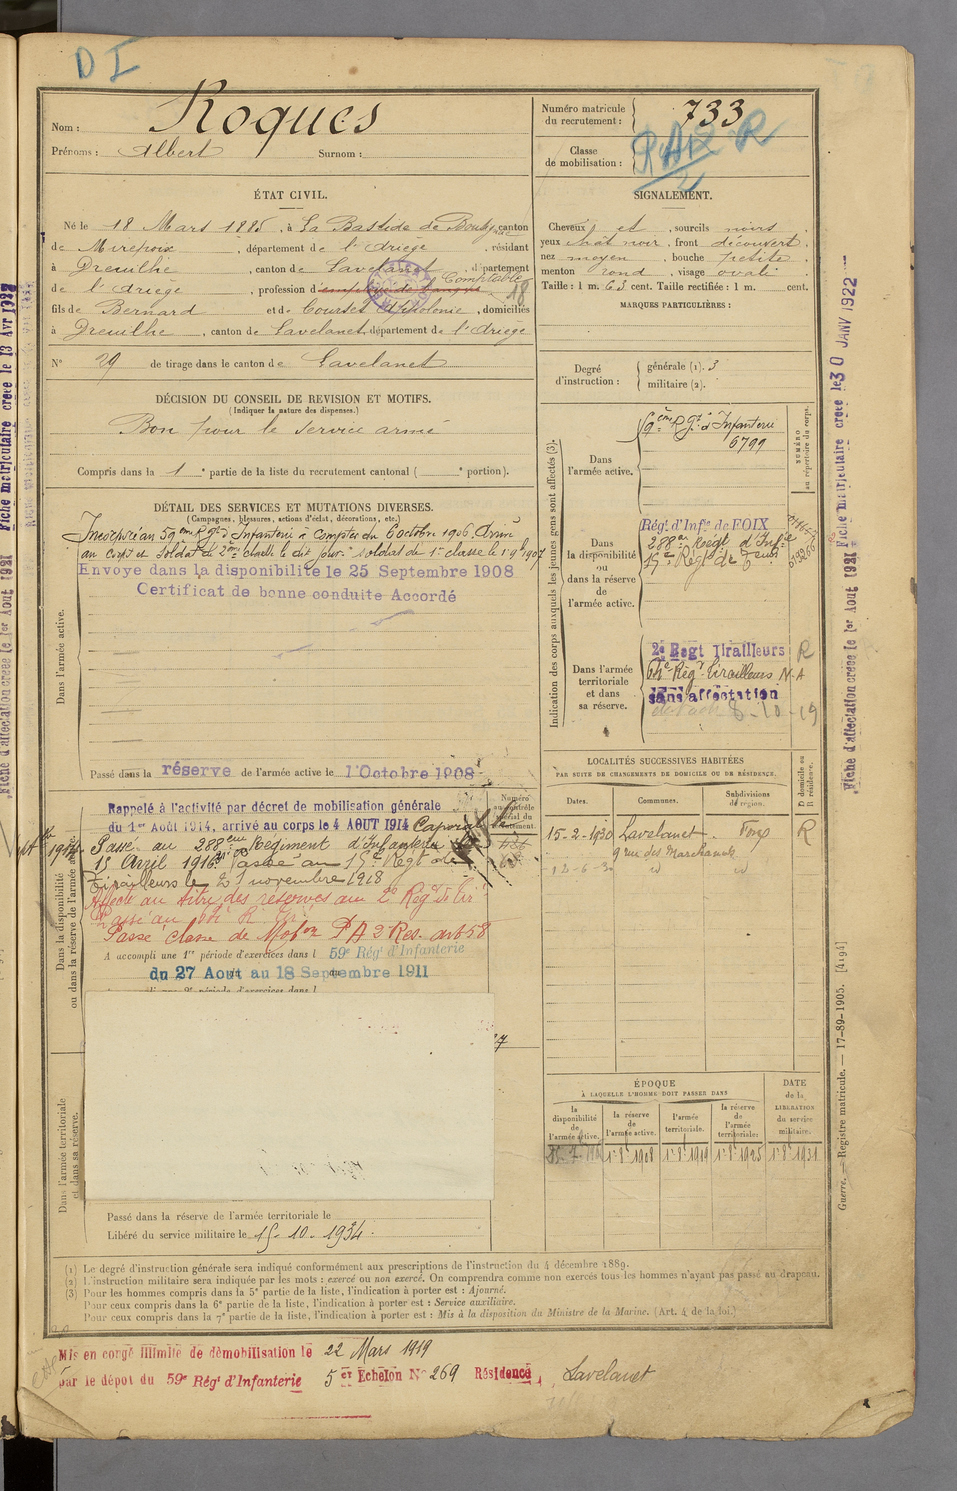 D I
Nom : Roques
Prénoms : Albert Surnom :
Numéro matricule du recrutement : 733
Classe de mobilisation :
P A 2 R
2
ÉTAT CIVIL.
Né le 18 Mars 1885, à La Bastide de canton
de Mirepoix, département de l'Ariège, résidant
à Dreuilhe, canton de Lavelanet, département
de l'Ariège, profession d'employé de banque Comptable
18
fils de Bernard et de Courset Appolonie, domiciliés
à Dreuilhe, canton de Lavelanet, département de l'Ariège
N° 29 de tirage dans le canton de Lavelanet
SIGNALEMENT.
Cheveux et, sourcils noirs.
yeux chât noir, front découvert,
nez moyen, bouche petite,
menton rond, visage ovale.
Taille : 1 m. 63 cent. Taille rectifiée : 1 m. cent.
MARQUES PARTICULIÈRES :
Degré d'instruction : générale (1). 3
militaire (2).
DÉCISION DU CONSEIL DE REVISION ET MOTIFS.
(Indiquer la nature des dispenses.)
Bon pour le service armé
Compris dans la 1e partie de la liste du recrutement cantonal ( e portion).
DÉTAIL DES SERVICES ET MUTATIONS DIVERSES.
(Campagnes, blessures, actions d'éclat, décorations, etc.)
Incorporé au 59ème Rgt d'Infanterie à Compter du 6 octobre 1906. Arrivé
au corps et Soldat de 2ème classe le dit jour. soldat de 1re classe le 1907
Envoye dans la disponibilité le 25 Septembre 1908
Certificat de bonne conduite Accordé
Dans l'armée active.
Passé dans la réserve de l'armée active le 1 Octobre 1908
Indication des corps auxquels les jeunes gens sont affectés (3).
Dans l'armée active.
59ème Rgt d'Infanterie
6799
NUMÉRO au répertoire du corps.
Dans la disponibilité ou dans la réserve de l'armée active.
Régt d'Infie de FOIX
288e Régt d'Infie
15e Régt de
Dans l'armée territoriale et dans sa réserve.
2e Regt Tirailleurs R
Régt Tirailleurs N.A
sans affectation
8-10-19
Dans la disponibilité ou dans la réserve de l'armée active.
Rappelé à l'activité par décret de mobilisation générale
du 1er Août 1914, arrivé au corps le 4 AOUT 1914 Caporal
Passé au 288ème Régiment d'Infanterie
15 Avril 1916. Passé au 15e Régt de
Tirailleurs le 21 novembre 1918
Affecté au titre des réserves au 2e Régt de Tir
Passé au
Passé classe de Mobon P A 2 Res. art 58
A accompli une 1re période d'exercices dans l 59e Régt d'Infanterie
du 27 Aout au 18 Septembre 1911
Numéro au contrôle spécial du recrutement.
LOCALITÉS SUCCESSIVES HABITÉES
PAR SUITE DE CHANGEMENTS DE DOMICILE OU DE RÉSIDENCE.
Dates. Communes. Subdivisions de région. D domicile ou R résidence.
15-2-1920 Lavelanet. Foix R
9 rue des Marchands
12-6-3 id id
ÉPOQUE
À LAQUELLE L'HOMME DOIT PASSER DANS
la disponibilité de l'armée active. la réserve de l'armée active. l'armée territoriale. la réserve de l'armée territoriale.
DATE de la LIBÉRATION du service militaire.
1908 1919 1925 1931
Dans l'armée territoriale et dans sa réserve.
Passé dans la réserve de l'armée territoriale le
Libéré du service militaire le 15-10-1934.
(1) Le degré d'instruction générale sera indiqué conformément aux prescriptions de l'instruction du 4 décembre 1889.
(2) L'instruction militaire sera indiquée par les mots : exercé ou non exercé. On comprendra comme non exercés tous les hommes n'ayant pas passé au drapeau.
(3) Pour les hommes compris dans la 5e partie de la liste, l'indication à porter est : Ajourné.
Pour ceux compris dans la 6e partie de la liste, l'indication à porter est : Service auxiliaire.
Pour ceux compris dans la 7e partie de la liste, l'indication à porter est : Mis à la disposition du Ministre de la Marine. (Art. 4 de la loi.)
Mis en congé illimité de démobilisation le 22 Mars 1919
par le dépot du 59e Régt d'Infanterie 5er Echelon N° 269 Résidence Lavelanet
Guerre. — Registre matricule. — 17-89-1905. [4-94]
Fiche d'affectation creee le 1er Aout 1921 Fiche matriculaire creee le 30 JANV 1922
Fiche d'affectation creee le 1er Aout 1921 Fiche matriculaire creee le 13 Avr 1922